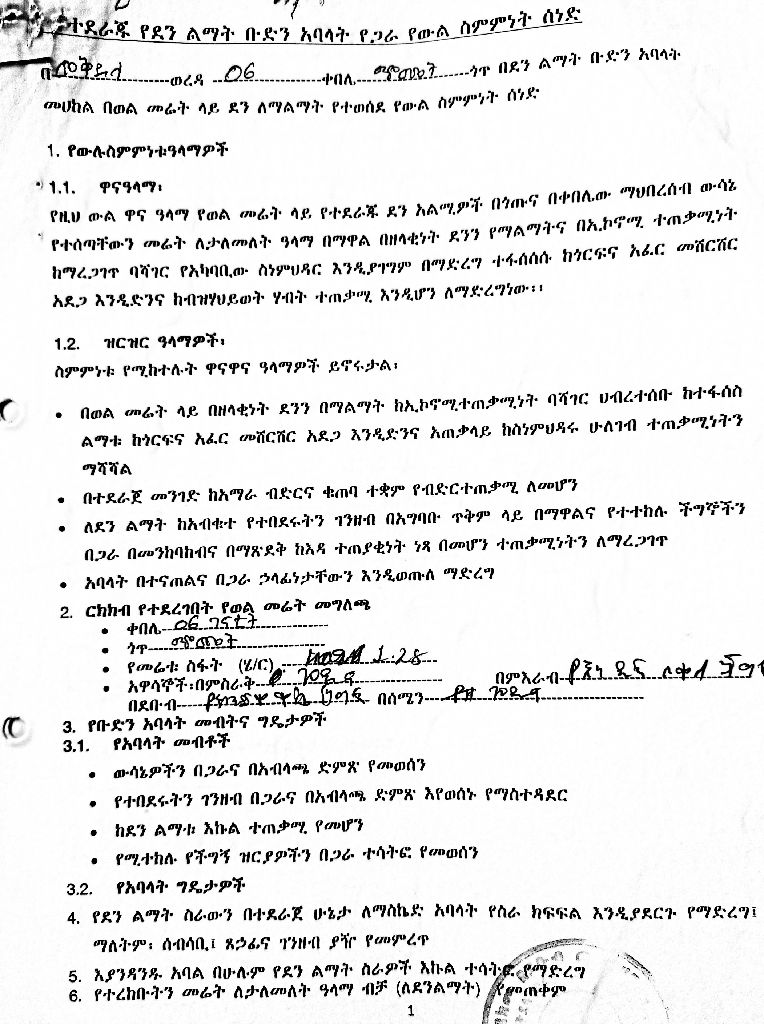 ተደራጁ የደን ልማት ቡድን አባላት የጋራ የውል ስምምነት ሰነድ
በ መቅደላ ወረዳ 06 ቀበሌ ጎጥ በደን ልማት ቡድን አባላት
መሀከል በወል መሬት ላይ ደን ለማልማት የተወሰደ የውል ስምምነት ሰነድ
1. የውሉስምምነቱዓላማዎች
1.1. ዋናዓላማ፡
የዚህ ውል ዋና ዓላማ የወል መሬት ላይ የተደራጁ ደን አልሚዎች በጎጡና በቀበሌው ማህበረሰብ ውሳኔ
የተሰጣቸውን መሬት ለታለመለት ዓላማ በማዋል በዘላቂነት ደንን የማልማትና በኢኮኖሚ ተጠቃሚነት
ከማረጋገጥ ባሻገር የአካባቢው ስነምህዳር እንዲያገግም በማድረግ ተፋሰሰሱ ከጎርፍና አፈር መሸርሸር
አደጋ እንዲድንና ከብዝሃህይወት ሃብት ተጠቃሚ እንዲሆን ለማድረግነው፡፡
1.2. ዝርዝር ዓላማዎች፡
ስምምነቱ የሚከተሉት ዋናዋና ዓላማዎች ይኖሩታል፡
• በወል መሬት ላይ በዘላቂነት ደንን በማልማት ከኢኮኖሚተጠቃሚነት ባሻገር ሀብረተሰቡ ከተፋሰስ
ልማቱ ከጎርፍና አፈር መሸርሸር አደጋ እንዲድንና አጠቃላይ ከስነምህዳሩ ሁለገብ ተጠቃሚነትን
ማሻሻል
• በተደራጀ መንገድ ከአማራ ብድርና ቁጠባ ተቋም የብድርተጠቃሚ ለመሆን
• ለደን ልማት ከአብቁተ የተበደሩትን ገንዘብ በአግባቡ ጥቅም ላይ በማዋልና የተተከሉ ችግኞችን
በጋራ በመንከባከብና በማጽደቅ ከእዳ ተጠያቂነት ነጻ በመሆን ተጠቃሚነትን ለማረጋገጥ
• አባላት በተናጠልና በጋራ ኃላፊነታቸውን እንዲወጡ ማድረግ
2. ርክክብ የተደረገበት የወል መሬት መግለጫ
• ቀበሌ 06
• ጎጥ
• የመሬቱ ስፋት (ሄ/ር) 1.28
• አዋሳኞች፡በምስራቅ በምእራብ
በደቡብ በሰሜን
3. የቡድን አባላት መብትና ግዴታዎች
3.1. የአባላት መብቶች
• ውሳኔዎችን በጋራና በአብላጫ ድምጽ የመወሰን
• የተበደሩትን ገንዘብ በጋራና በአብላጫ ድምጽ እየወሰኑ የማስተዳደር
• ከደን ልማቱ እኩል ተጠቃሚ የመሆን
• የሚተከሉ የችግኝ ዝርያዎችን በጋራ ተሳትፎ የመወሰን
3.2. የአባላት ግዴታዎች
4. የደን ልማት ስራውን በተደራጀ ሁኔታ ለማስኬድ አባላት የስራ ክፍፍል እንዲያደርጉ የማድረግ፤
ማለትም፡ ሰብሳቢ፤ ጸኃፊና ገንዘብ ያዥ የመምረጥ
5. እያንዳንዱ አባል በሁሉም የደን ልማት ስራዎች እኩል ተሳትፎ የማድረግ
6. የተረከቡትን መሬት ለታለመለት ዓላማ ብቻ (ለደንልማት) የመጠቀም
1